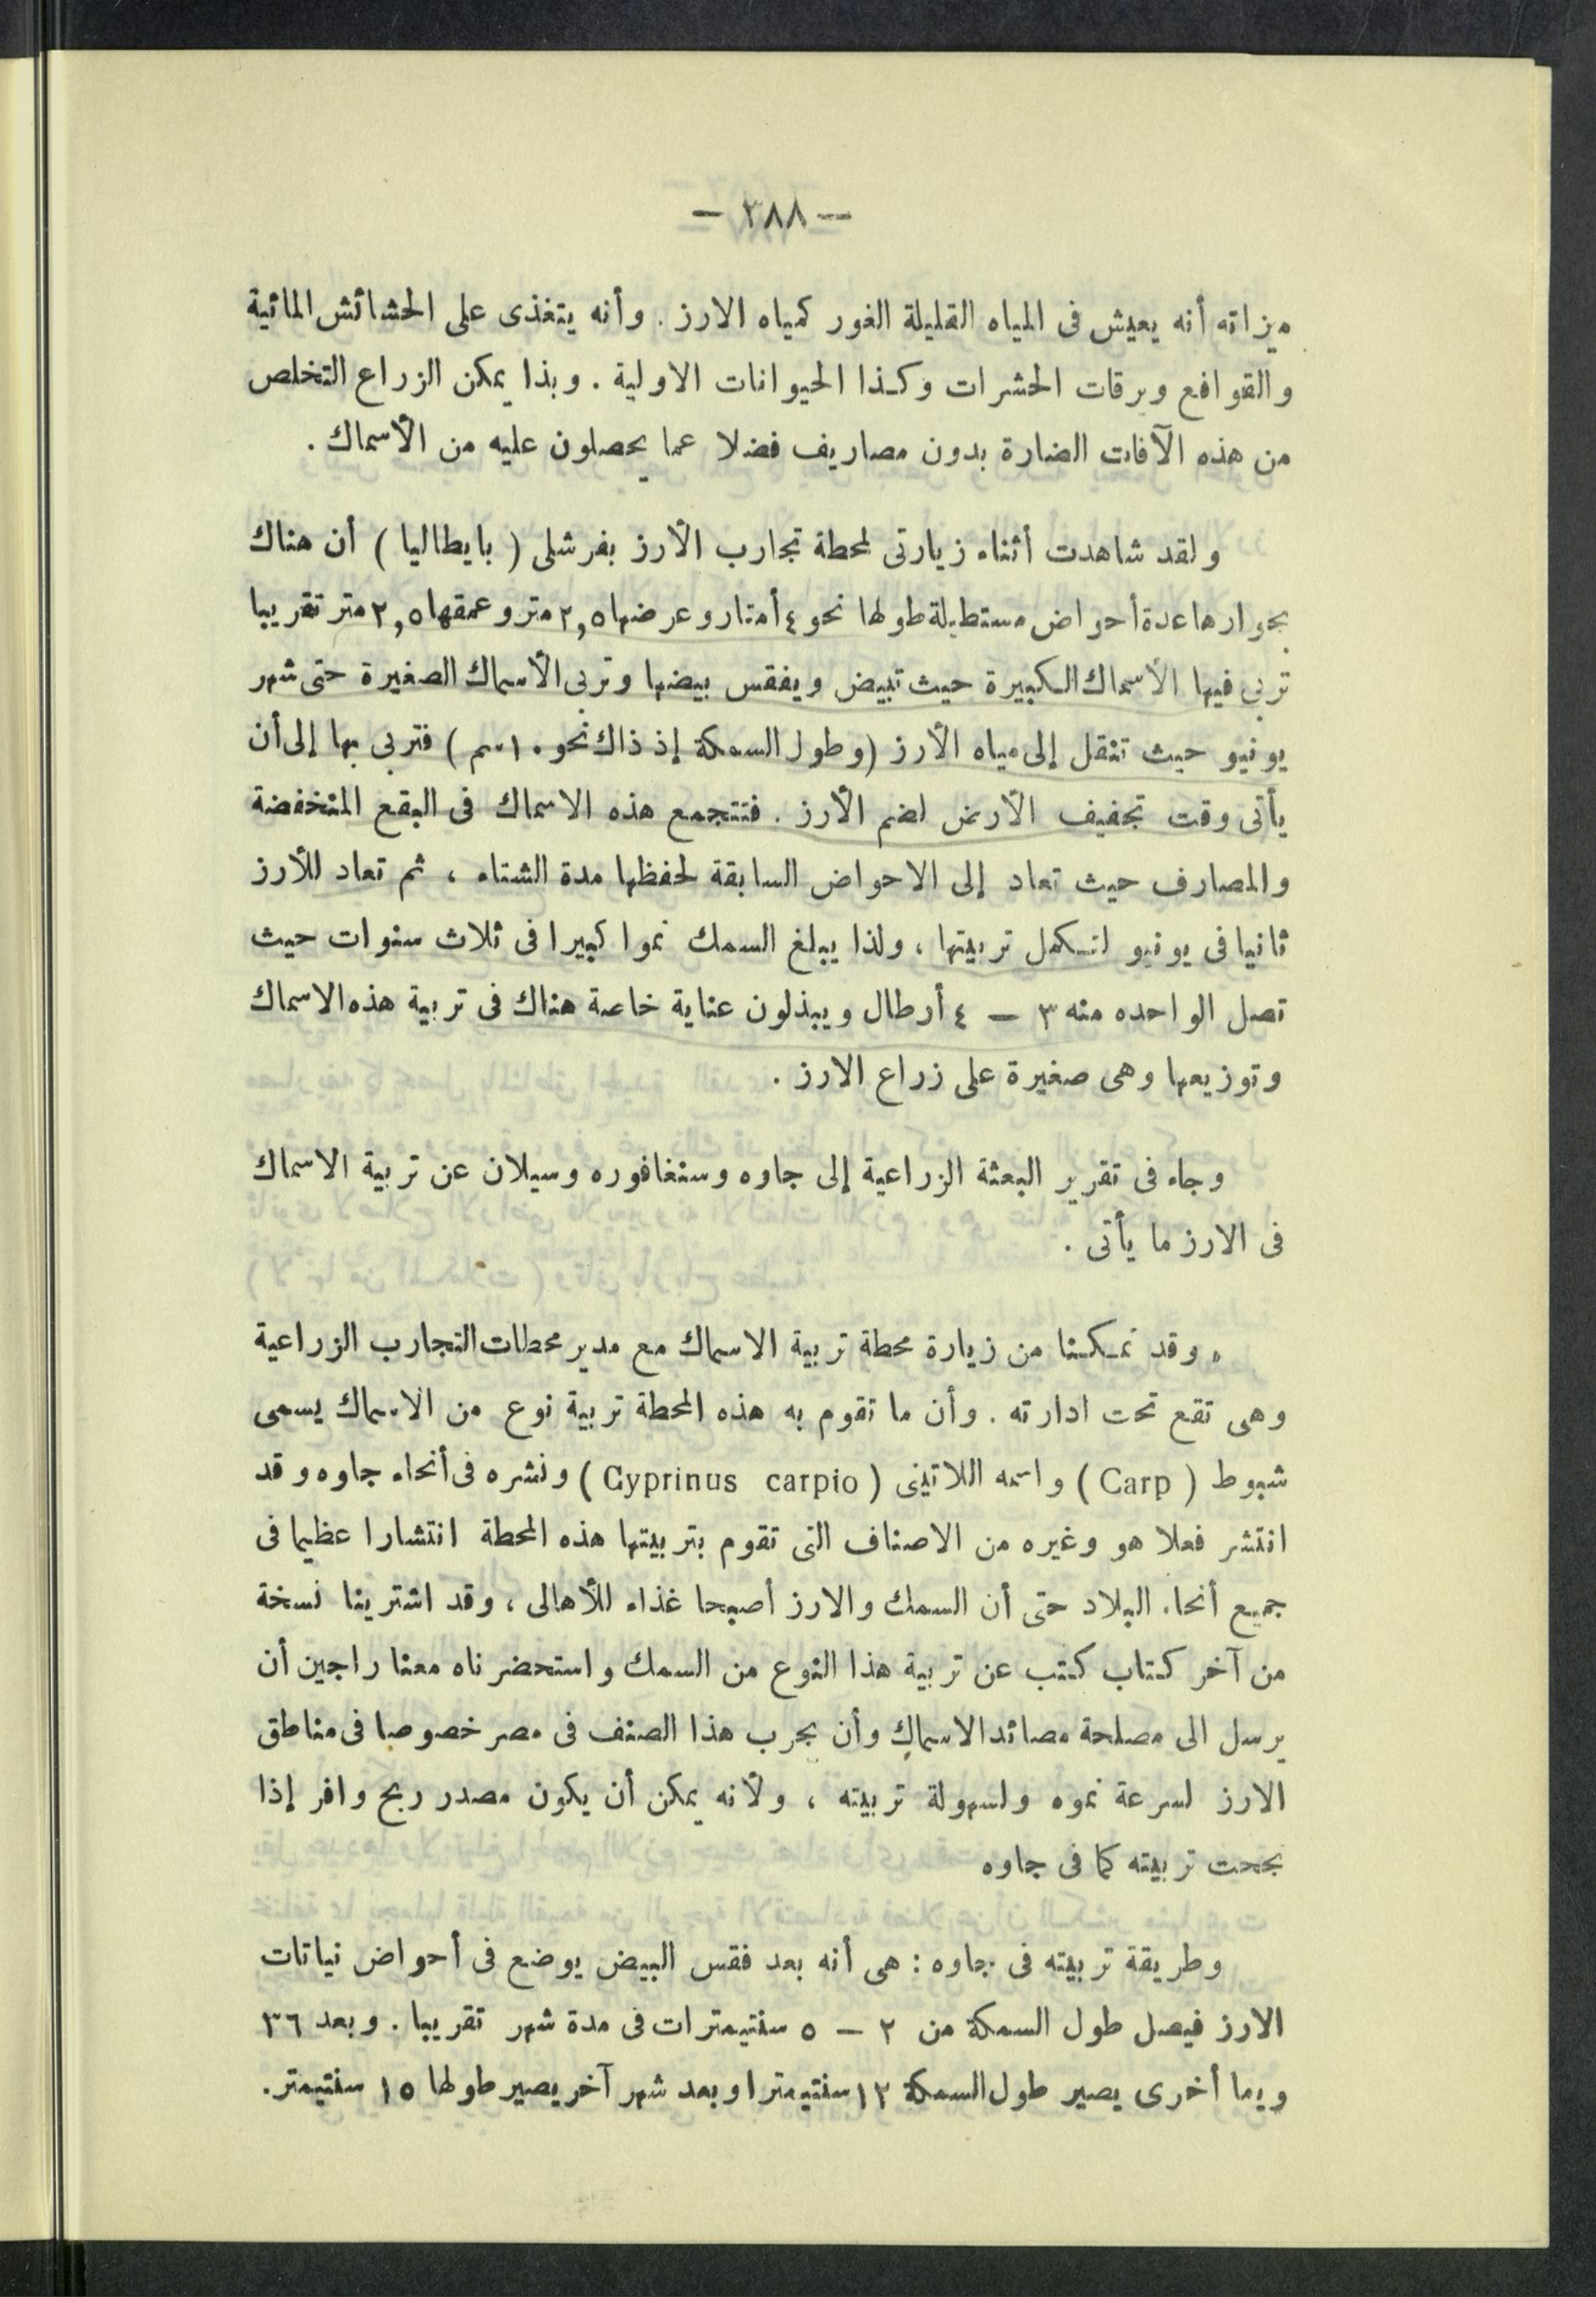 — ٣٨٨ —
ميزاته أنه يعيش فى المياه القليلة الغور كمياه الارز . وأنه يتغذى على الحشائش المائية
والقواقع ويرقات الحشرات وكذا الحيوانات الاولية . وبذا يمكن الزراع التخلص
من هذه الآفات الضارة بدون مصاريف فضلا عما يحصلون عليه من الأسماك .
ولقد شاهدت أثناء زيارتى لمحطة تجارب الأرز بفرشلى ( بايطاليا ) أن هناك
بجوارها عدة أحواض مستطيلة طولها نحو ٤ أمتار وعرضها ٢,٥ متر وعمقها ٢,٥ متر تقريبا
تربى فيها الأسماك الكبيرة حيث تبيض ويفقس بيضها وتربى الأسماك الصغيرة حتى شهر
يونيو حيث تنقل إلى مياه الأرز (وطول السمكة إذ ذاك نحو ١٠ سم ) فتربى بها إلى أن
يأتى وقت تجفيف الأرض لضم الأرز . فتتجمع هذه الاسماك فى البقع المنخفضة
والمصارف حيث تعاد إلى الاحواض السابقة لحفظها مدة الشتاء ، ثم تعاد للأرز
ثانيا فى يونيو لتكمل تربيتها ، ولذا يبلغ السمك نموا كبيرا فى ثلاث سنوات حيث
تصل الواحده منه ٣ — ٤ أرطال ويبذلون عناية خاصة هناك فى تربية هذه الاسماك
وتوزيعها وهى صغيرة على زراع الارز .
وجاء فى تقرير البعثة الزراعية إلى جاوه وسنغافوره وسيلان عن تربية الاسماك
فى الارز ما يأتى .
« وقد تمكنا من زيارة محطة تربية الاسماك مع مدير محطات التجارب الزراعية
وهى تقع تحت ادارته . وأن ما تقوم به هذه المحطة تربية نوع من الاسماك يسمى
شبوط ( Carp ) واسمه اللاتينى ( Cyprinus carpio ) ونشره فى أنحاء جاوه وقد
انتشر فعلا هو وغيره من الاصناف التى تقوم بتربيتها هذه المحطة انتشارا عظيما فى
جميع أنحاء البلاد حتى أن السمك والارز أصبحا غذاء للأهالى ، وقد اشترينا نسخة
من آخر كتاب كتب عن تربية هذا النوع من السمك واستحضرناه معنا راجين أن
يرسل الى مصلحة مصائد الاسماك وأن يجرب هذا الصنف فى مصر خصوصا فى مناطق
الارز لسرعة نموه ولسهولة تربيته ، ولأنه يمكن أن يكون مصدر ربح وافر إذا
نجحت تربيته كما فى جاوه
وطريقة تربيته فى جاوه : هى أنه بعد فقس البيض يوضع فى أحواض نباتات
الارز فيصل طول السمكة من ٢ — ٥ سنتيمترات فى مدة شهر تقريبا . وبعد ٣٦
ويما أخرى يصير طول السمكة ١٢ سنتيمترا وبعد شهر آخر يصير طولها ١٥ سنتيمتر.